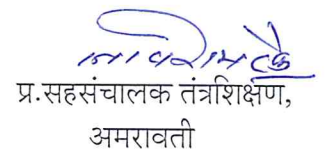 प्र.सहसंचालक तंत्रशिक्षण,
अमरावती